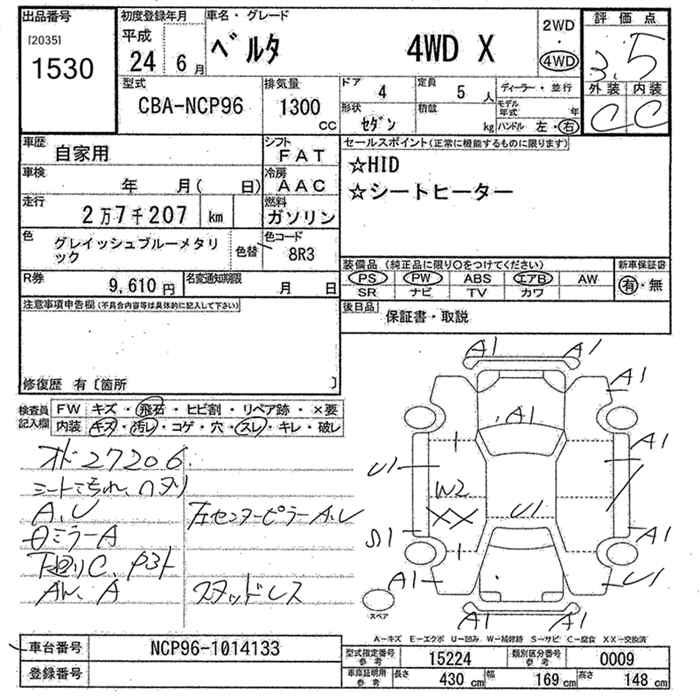 出品番号
[2035]
1530
初度登録年月
平成
24 6月
車名・グレード
ベルタ 4WD X
2WD
・
4WD
評価点
3.5
外装 内装
C C
型式
CBA-NCP96
排気量
1300
CC
ドア 4
形状 セダン
定員 5 人
積載 kg
ディーラー・並行
モデル年式 年
ハンドル 左・右
車歴 自家用
シフト FAT
車検 年 月( 日)
冷房 AAC
走行 2万7千207 km
燃料 ガソリン
色 グレイッシュブルーメタリック
色替
色コード 8R3
R券 9,610円
名変通知期限 月 日
セールスポイント(正常に機能するものに限ります)
☆HID
☆シートヒーター
装備品(純正品に限り○をつけてください)
PS PW ABS エアB AW
SR ナビ TV カワ
新車保証書
有・無
後日品
保証書・取説
注意事項申告欄(不具合内容等は具体的に記入して下さい)
修復歴 有〔箇所 〕
検査員記入欄
FW キズ・飛石・ヒビ割・リペア跡・×要
内装 キズ・汚レ・コゲ・穴・スレ・キレ・破レ
オド27206
シート汚れ、ヘタリ
A、U 左センターピラーA、U
ミラーA
下廻りC
A スタッドレス
A1 A1
A1
A1
A1
U1
W2
XX
U1
A1
S1
A1
A1
U1
A1 A1
スペア
A－キズ E－エクボ U－凹み W－補修跡 S－サビ C－腐食 XX－交換済
車台番号 NCP96-1014133
登録番号
型式指定番号 参考 15224
類別区分番号 参考 0009
車庫証明用 参考
長さ 430 cm 幅 169 cm 高さ 148 cm